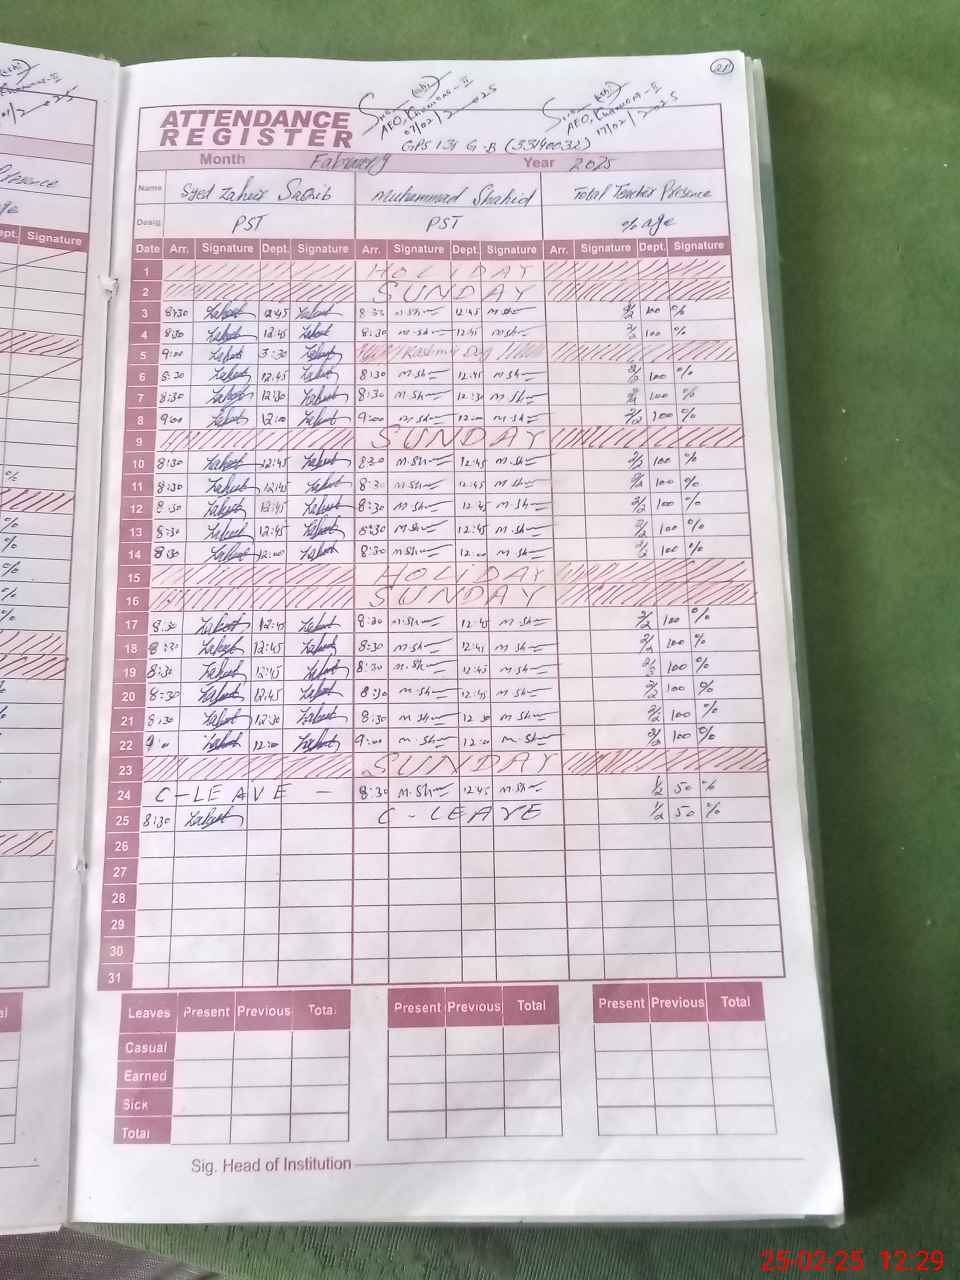 21
AEO, Khanuana-II
07/02/2025
AEO, Khanuana-II
17/02/2025
ATTENDANCE
REGISTER
GPS 131 G-B (33140032)
Month Fabruary Year 2025
Name Syed Zaheir Saqib Muhammad Shahid Total Teacher Presence
Desig. PST PST % age
Date Arr. Signature Dept. Signature Arr. Signature Dept. Signature Arr. Signature Dept. Signature
1 HOLIDAY
2 SUNDAY
3 8:30 Zaheer 12:45 Zaheer 8:30 M.Sh 12:45 M.Sh 2/2 100 %
4 8:30 Zaheer 12:45 Zaheer 8:30 M.Sh 12:45 M.Sh 2/2 100 %
5 9:00 Zaheer 3:30 Zaheer Kashmir Day
6 8:30 Zaheer 12:45 Zaheer 8:30 M.Sh 12:45 M.Sh 2/2 100 %
7 8:30 Zaheer 12:30 Zaheer 8:30 M.Sh 12:30 M.Sh 2/2 100 %
8 9:00 Zaheer 12:00 Zaheer 9:00 M.Sh 12:00 M.Sh 2/2 100 %
9 SUNDAY
10 8:30 Zaheer 12:45 Zaheer 8:30 M.Sh 12:45 M.Sh 2/2 100 %
11 8:30 Zaheer 12:45 Zaheer 8:30 M.Sh 12:45 M.Sh 2/2 100 %
12 8:30 Zaheer 12:45 Zaheer 8:30 M.Sh 12:45 M.Sh 2/2 100 %
13 8:30 Zaheer 12:45 Zaheer 8:30 M.Sh 12:45 M.Sh 2/2 100 %
14 8:30 Zaheer 12:00 Zaheer 8:30 M.Sh 12:00 M.Sh 2/2 100 %
15 HOLIDAY
16 SUNDAY
17 8:30 Zaheer 12:45 Zaheer 8:30 M.Sh 12:45 M.Sh 2/2 100 %
18 8:30 Zaheer 12:45 Zaheer 8:30 M.Sh 12:45 M.Sh 2/2 100 %
19 8:30 Zaheer 12:45 Zaheer 8:30 M.Sh 12:45 M.Sh 2/2 100 %
20 8:30 Zaheer 12:45 Zaheer 8:30 M.Sh 12:45 M.Sh 2/2 100 %
21 8:30 Zaheer 12:30 Zaheer 8:30 M.Sh 12:30 M.Sh 2/2 100 %
22 9:00 Zaheer 12:00 Zaheer 9:00 M.Sh 12:00 M.Sh 2/2 100 %
23 SUNDAY
24 C-LEAVE - 8:30 M.Sh 12:45 M.Sh 1/2 50 %
25 8:30 Zaheer C-LEAVE 1/2 50 %
26
27
28
29
30
31
Leaves Present Previous Total Present Previous Total Present Previous Total
Casual
Earned
Sick
Total
Sig. Head of Institution
25-02-25 12:29